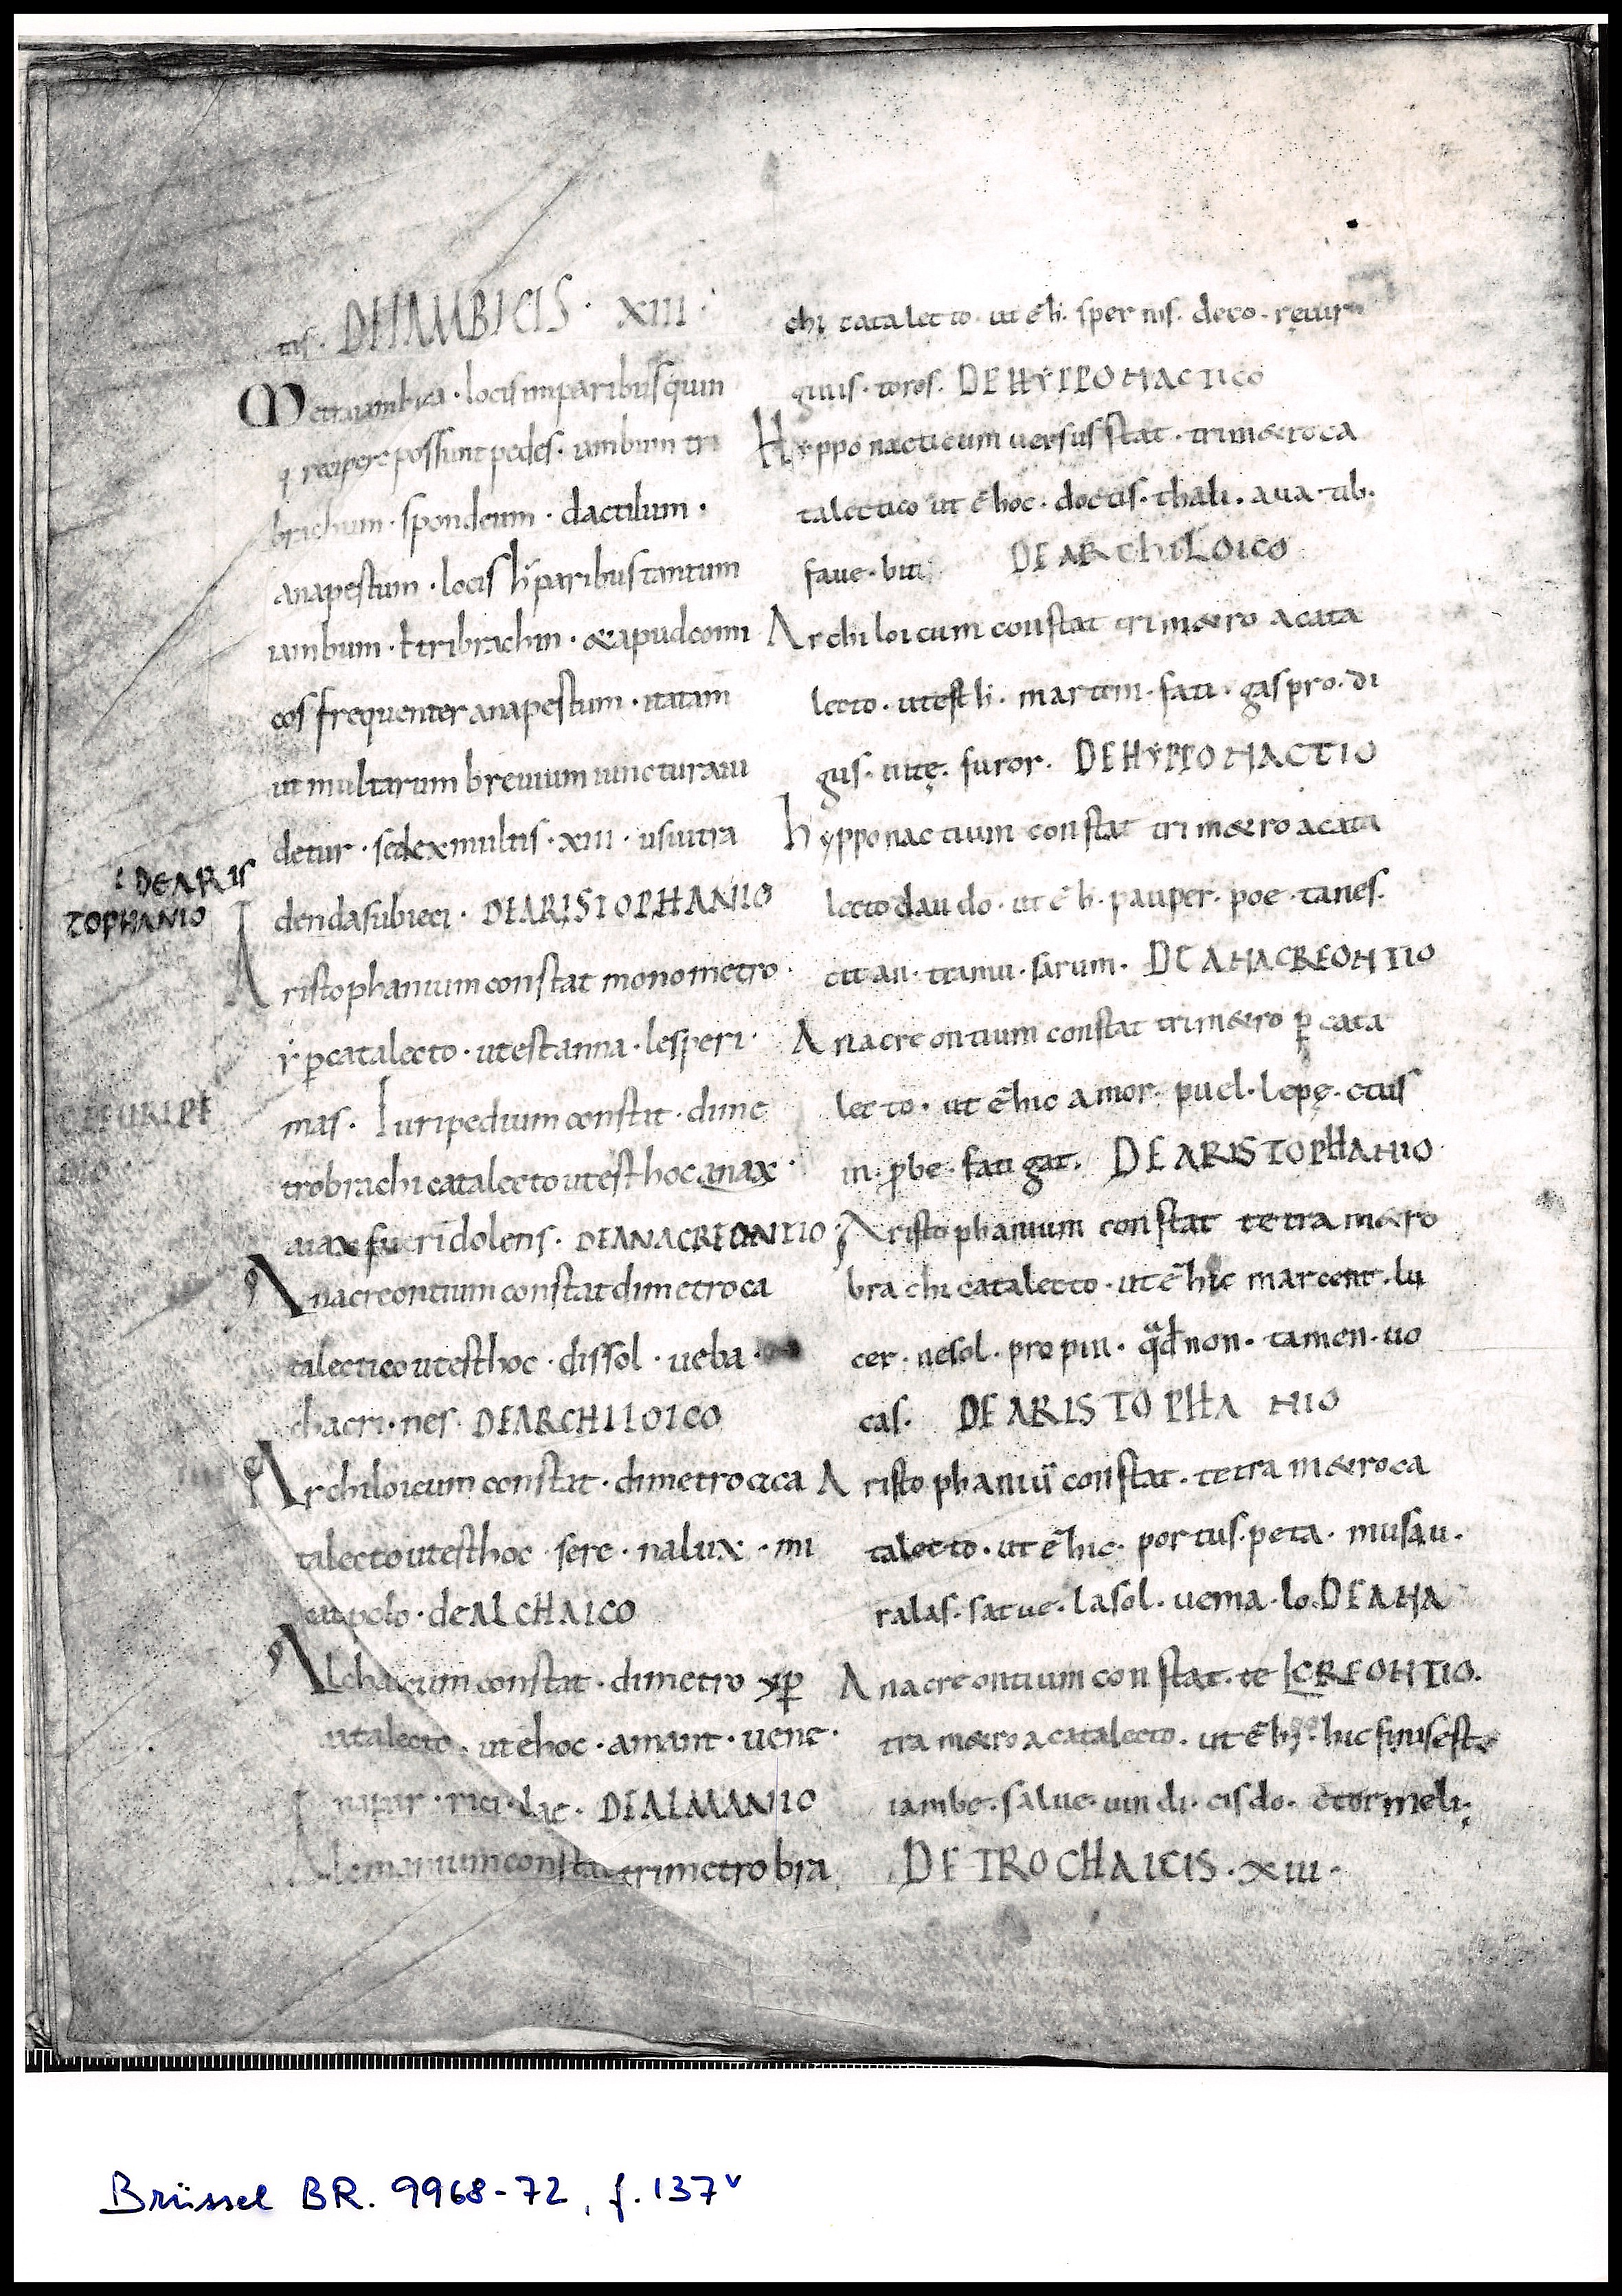 tis. DEIAMBICIS · XIII ·
Metra iambica · locis imparibus quin
q; recipere possunt pedes · iambum tri
brachum · spondeum · dactilum ·
anapestum · locis ħ paribus tantum
iambum · ł tribrachin · & apud comi
cos frequenter anapestum · ita tam̄
ut multarum brevium iunctura ui
detur · sed ex multis · XIII · usui tra
dendasubieci · DEARISTOPHANIO
Aristophanium constat monometro ·
yꝑcatalecto · utestanna · lesperi ·
mas · Euripedium constat · dime
trobrachi catalecto utesthoc anax ·
aiax fueridolens · DEANACREONTIO
Anacreontium constat dimetro ca
talectico utesthoc · dissol · ueba ·
chacri · nes · DEARCHILOICO
Archiloicum constat · dimetro aca
talecto utesthoc · sere · nalux · mi
cat polo · deALCHAICO
Alchaicum constat · dimetro yꝑ
catalecto · ut ēhoc · amant · uene ·
napar · rici · dae · DEALMANIO
Alemanium constat trimetro bra
: DEARIS
TOPHANIO
DEEURIPE
DIO
chi catalecto · ut ē ħ · sper nis · deco · ręuir
ginis · toros · DE HYPPONACTICO
Hypponacticum uersus stat · trim&roca
talectico ut ē hoc · doctis · thali · aua · tib ·
faue · bit; DE ARCHILOICO
Archiloicum constat trim&ro acata
lecto · utest ħ · martem · fati · gaspro · di
gus · uitę · furor · DEHYPPONACTIO
hypponactium constat trim&ro acata
lecto clau do · ut ē ħ · pauper · poe · tanes ·
cit an · tramu · sarum · DE ANACREONTIO
Anacreontium constat trim&ro ꝑ cata
lecto · ut ē hic amor · puel · lepę · ctus
in · ꝓbe · fati gat · DE ARISTOPHANIO
Aristophanium constat tetram&ro
brachi catalecto · ut ē hic marcent · lu
cer · nesol · propin · qđ non · tamen · uo
cas · DE ARISTOPHANIO
Aristophaniū constat · tetram&roca
talecto · ut ē hic · portus · peta · musau ·
ralas · satue · lasol · uema · lo · DE ANA
Anacreontium constat · te CREONTIO ·
tram&ro acatalecto · ut ē ħ · hic finis est
iambe · salue · uin di · cis do · ctor meli;
DE TROCHAICIS · XIII ·
Brüssel BR. 9968-72, f. 137v